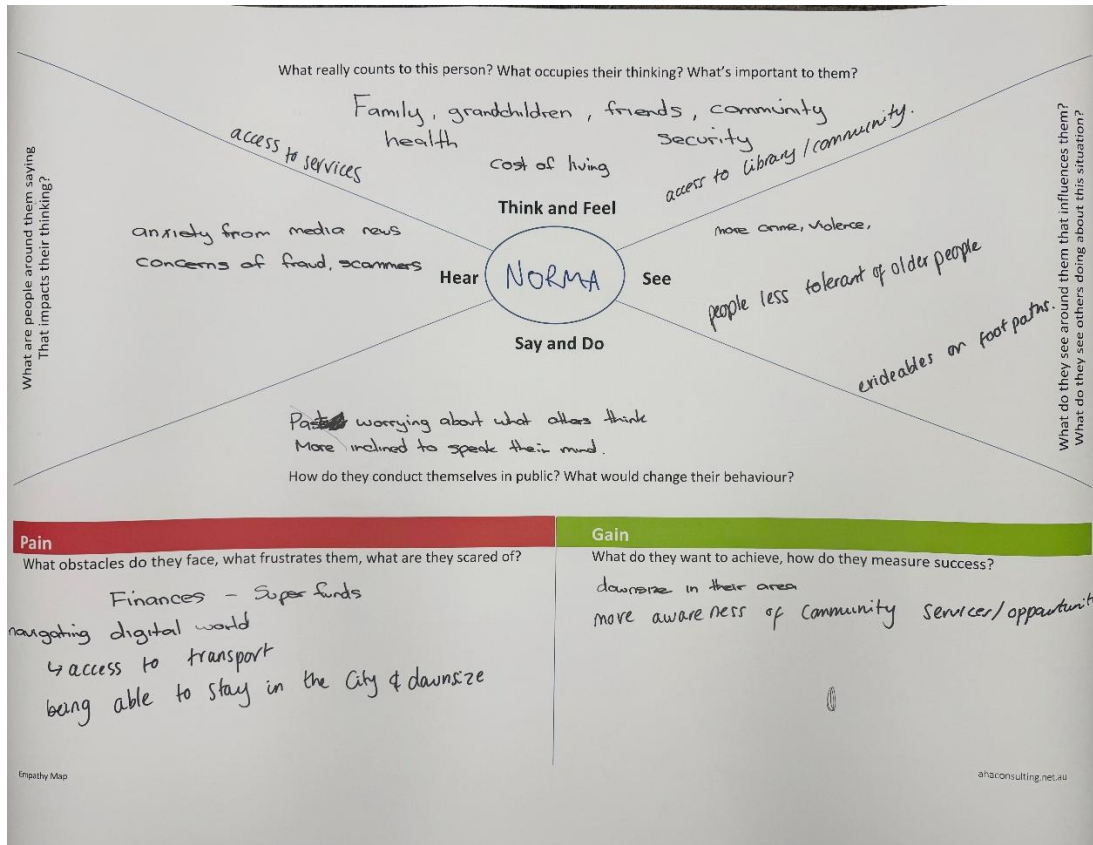 What really counts to this person? What occupies their thinking? What's important to them?
Family, grandchildren, friends, community
health security
access to services
cost of living
access to Library/community.
Think and Feel
What are people around them saying
That impacts their thinking?
anxiety from media news
concerns of fraud, scammers
Hear
NORMA
See
more crime, violence,
people less tolerant of older people
erideables on foot paths.
What do they see around them that influences them?
What do they see others doing about this situation?
Say and Do
Past worrying about what others think
More inclined to speak their mind.
How do they conduct themselves in public? What would change their behaviour?
Pain
What obstacles do they face, what frustrates them, what are they scared of?
Finances - Super funds
navigating digital world
↳ access to transport
being able to stay in the City & downsize
Gain
What do they want to achieve, how do they measure success?
downsize in their area
more awareness of community services/opportunit
Empathy Map
ahaconsulting.net.au